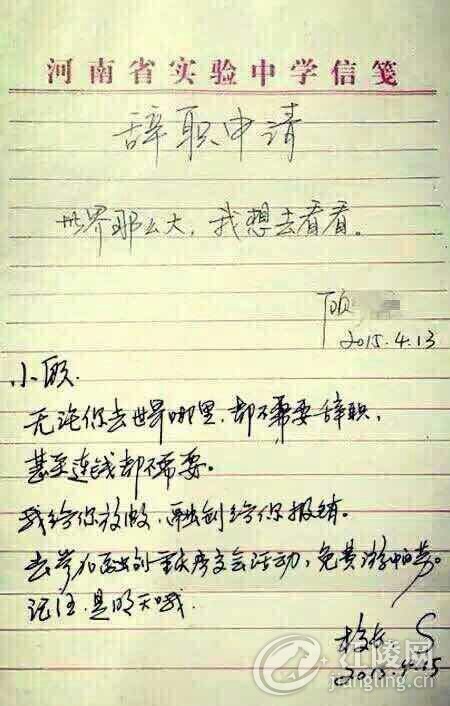 河南省实验中学信笺
辞职申请
世界那么大，我想去看看。
顾
2015.4.13
小顾.
无论你去世界哪里，都不需要辞职，
甚至连钱都不需要。
我给你放假，给你报销。
去参加重庆房交会活动，免费游
记住，是明天哦.
校长 S
2015.4.15
江陵网
jiangling.cn